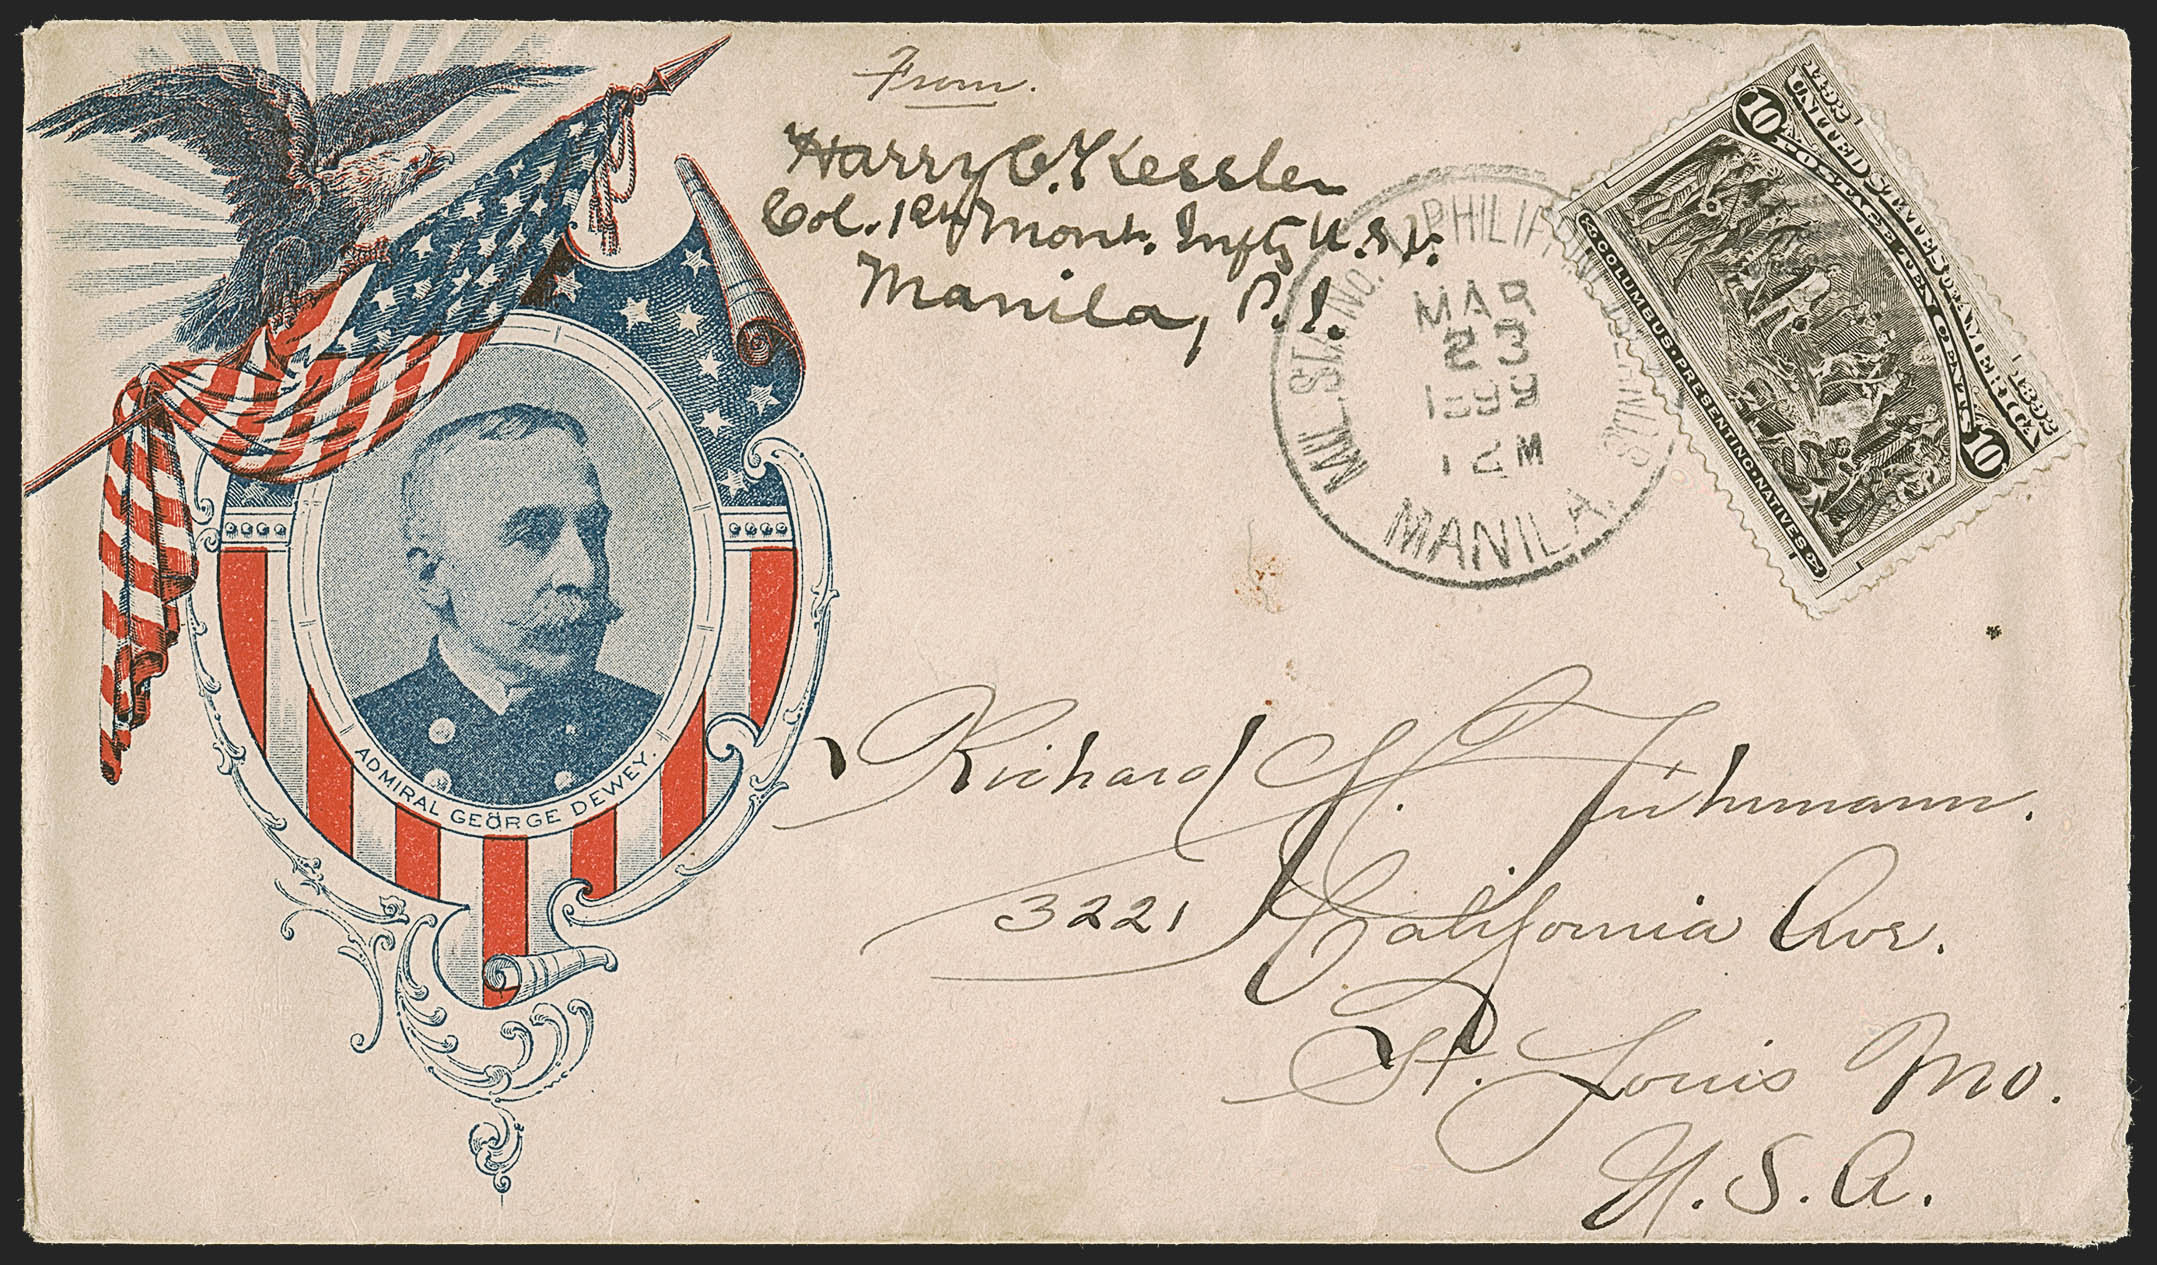 From.
Harry C. Kessler
Col. 1st Mont. Infty U.S.V.
Manila, P.I.
MIL. STA. NO. 1 PHILIPPINE ISLANDS
MAR
23
1899
12 M
MANILA.
1492 1892
UNITED STATES OF AMERICA
10 POSTAGE TEN CENTS 10
COLUMBUS · PRESENTING · NATIVES
ADMIRAL GEORGE DEWEY.
Richard H. Fuhrmann.
3221 California Ave.
St. Louis Mo.
U.S.A.